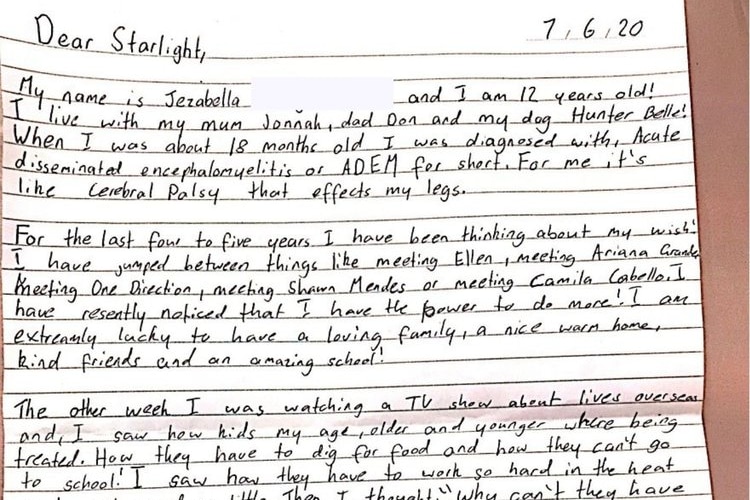 7/6/20
Dear Starlight,
My name is Jezabella and I am 12 years old!
I live with my mum Jonnah, dad Don and my dog Hunter Belle!
When I was about 18 months old I was diagnosed with, Acute
disseminated encephalomyelitis or ADEM for short. For me it's
like Cerebral Palsy that effects my legs.
For the last four to five years I have been thinking about my wish!
I have jumped between things like meeting Ellen, meeting Ariana Grande
meeting One Direction, meeting Shawn Mendes or meeting Camila Cabello. I
have resently noticed that I have the power to do more! I am
extreamly lucky to have a loving family, a nice warm home,
kind friends and an amazing school!
The other week I was watching a TV show about lives overseas
and, I saw how kids my age, older and younger where being
treated. How they have to dig for food and how they can't go
to school! I saw how they have to work so hard in the heat
little. Then I thought "Why can't they have